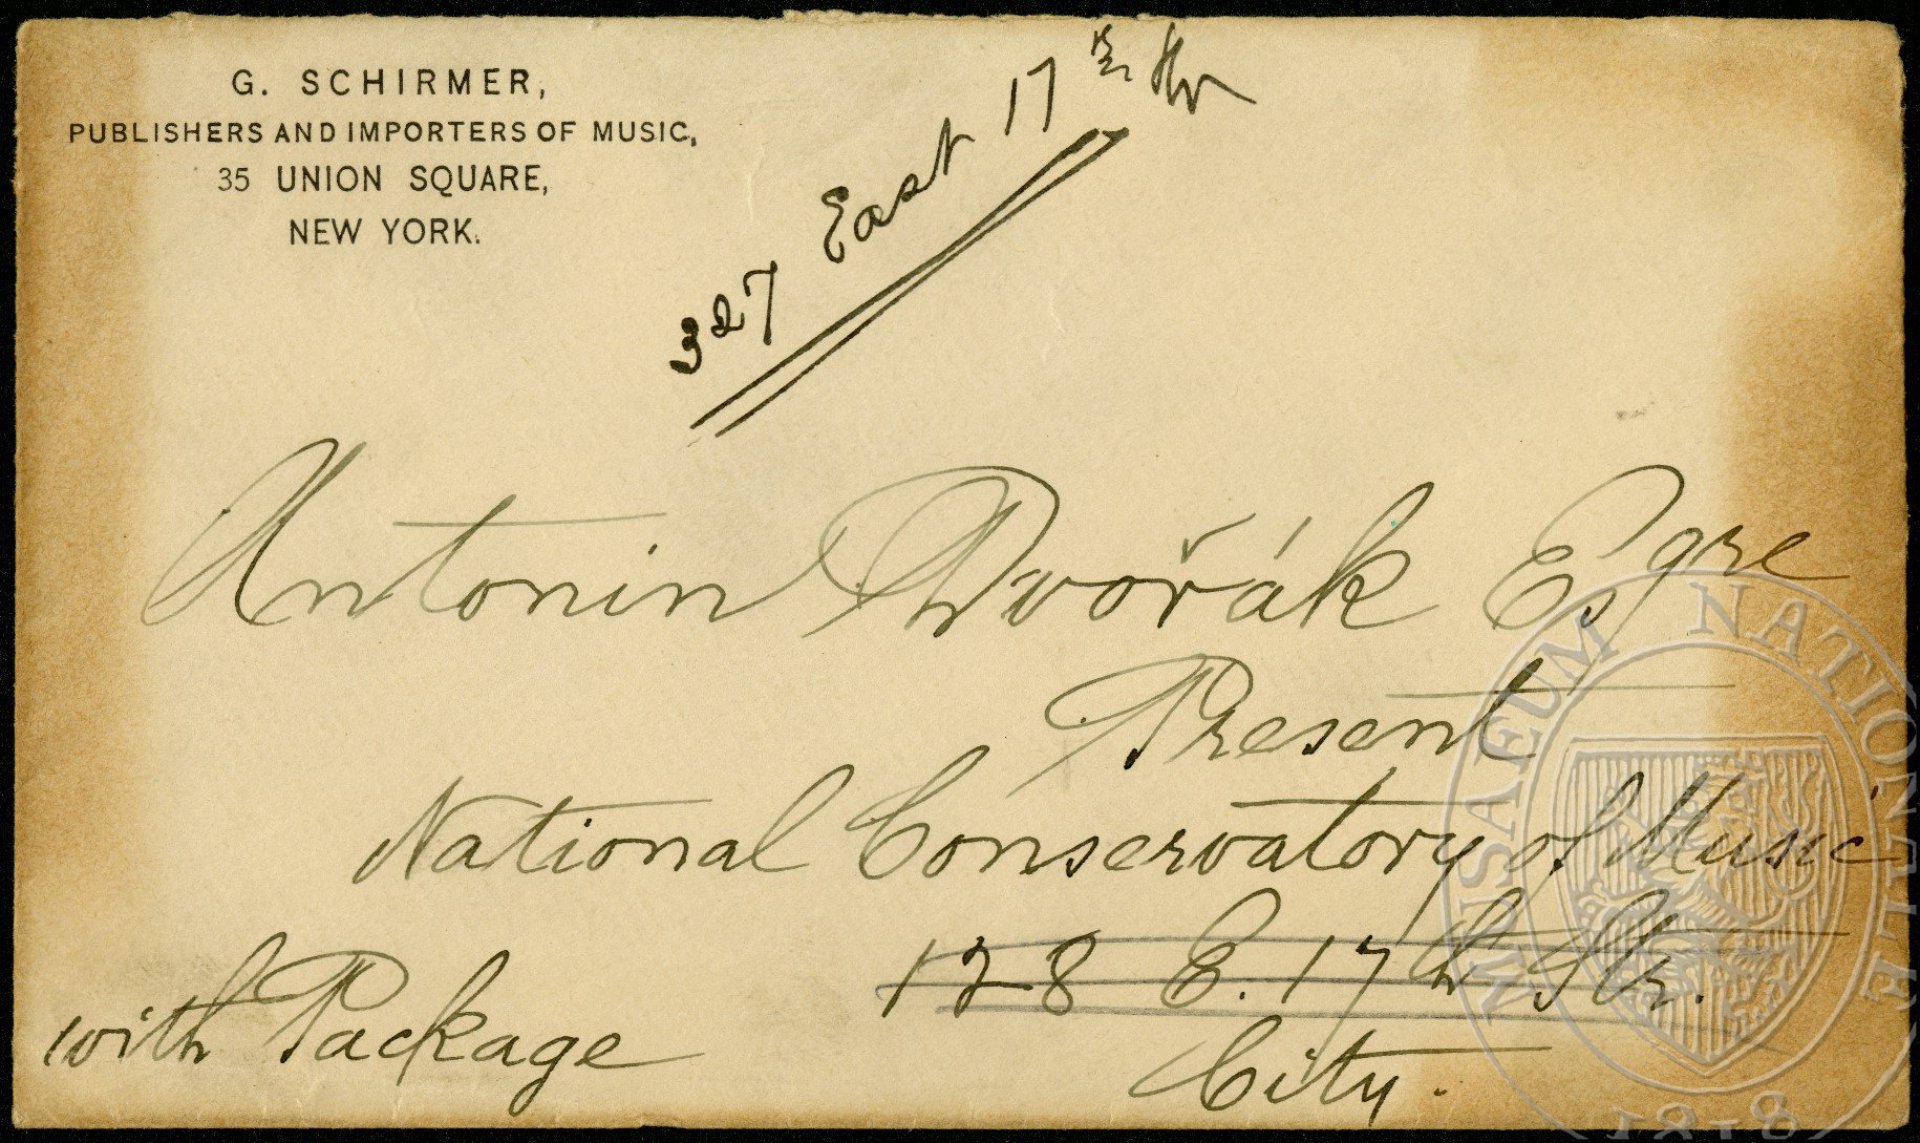 G. SCHIRMER,
PUBLISHERS AND IMPORTERS OF MUSIC,
35 UNION SQUARE,
NEW YORK.
327 East 17th Str
Antonin Dvořák Esqre
Present
National Conservatory of Music
128 E. 17th Str.
City.
with Package
MUSAEUM NATIONALE
1818